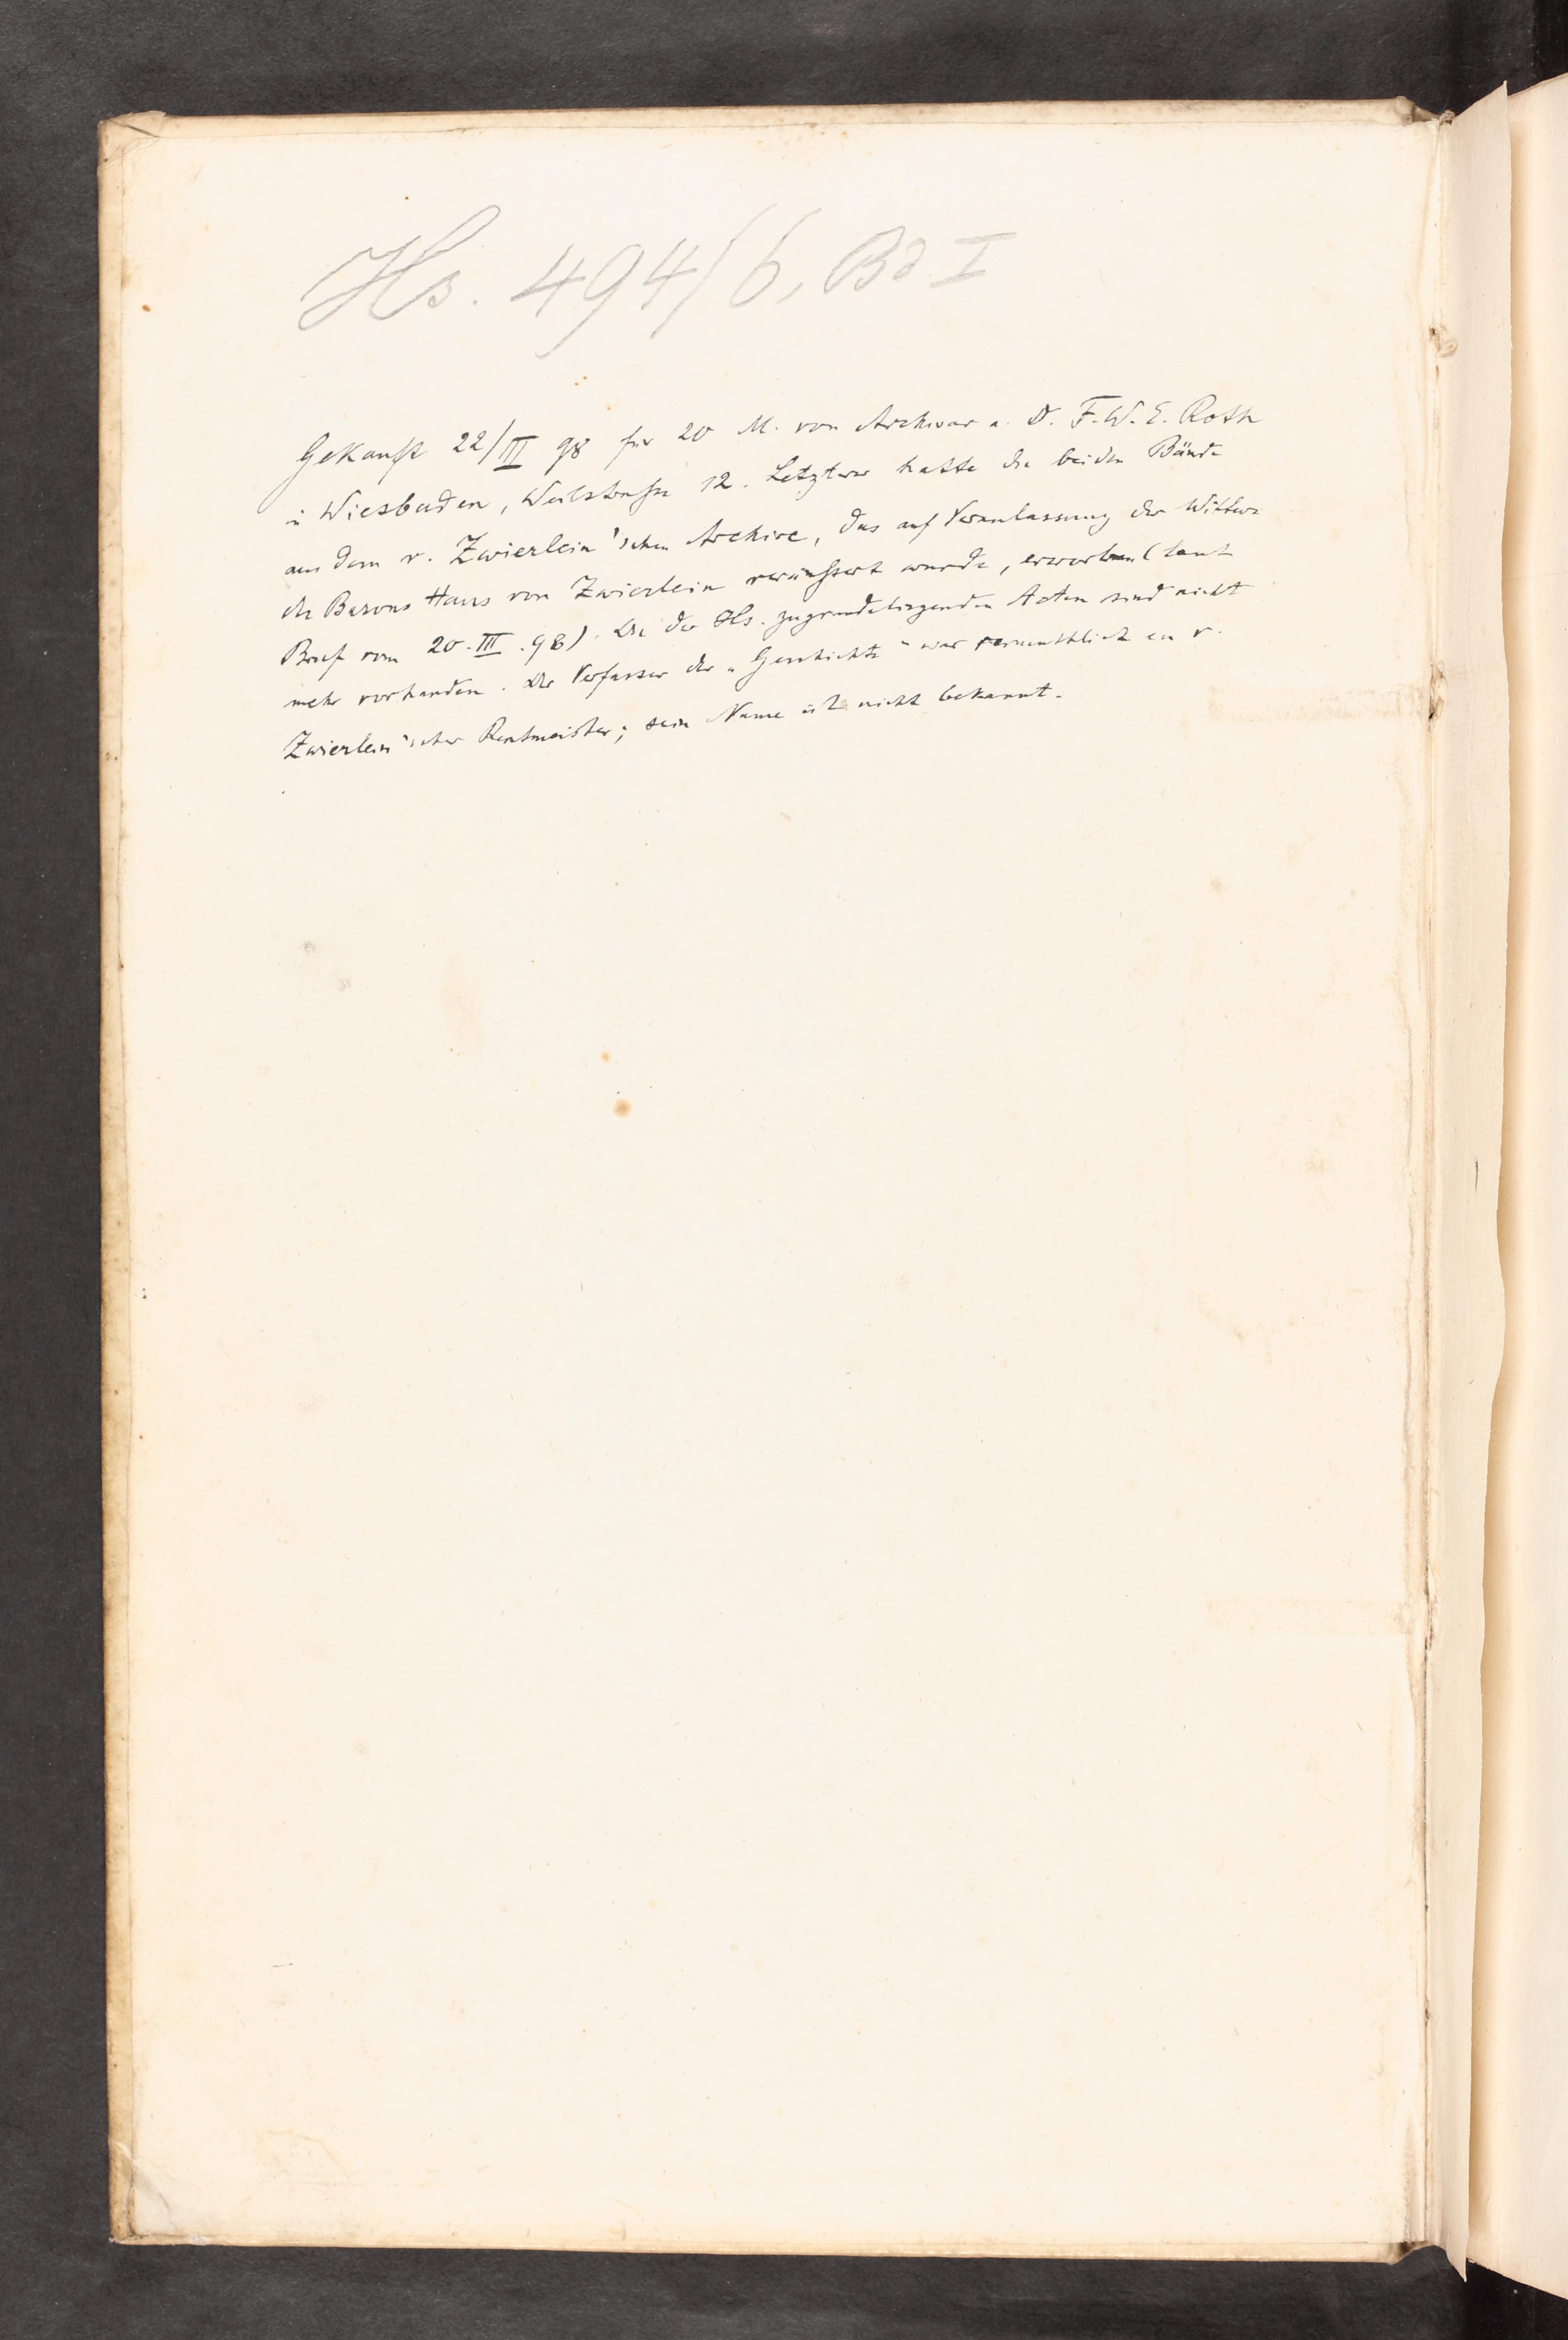 Hs. 494/6, Bd I
Gekauft 22/III 98 für 20 M. von Archivar a. D. F. W. E. Roth
in Wiesbaden, Weilstrasse 12. Letzterer hatte die beiden Bände
aus dem v. Zwierlein'schen Archive, das auf Veranlassung der Wittwe
des Barons Hans von Zwierlein veräussert wurde, erworben (laut
Brief vom 20. III. 98). Die der Hs. zugrundeliegenden Acten sind nicht
mehr vorhanden. Der Verfasser der „Geschichte“ war vermuthlich ein v.
Zwierlein'scher Rentmeister; sein Name ist nicht bekannt.